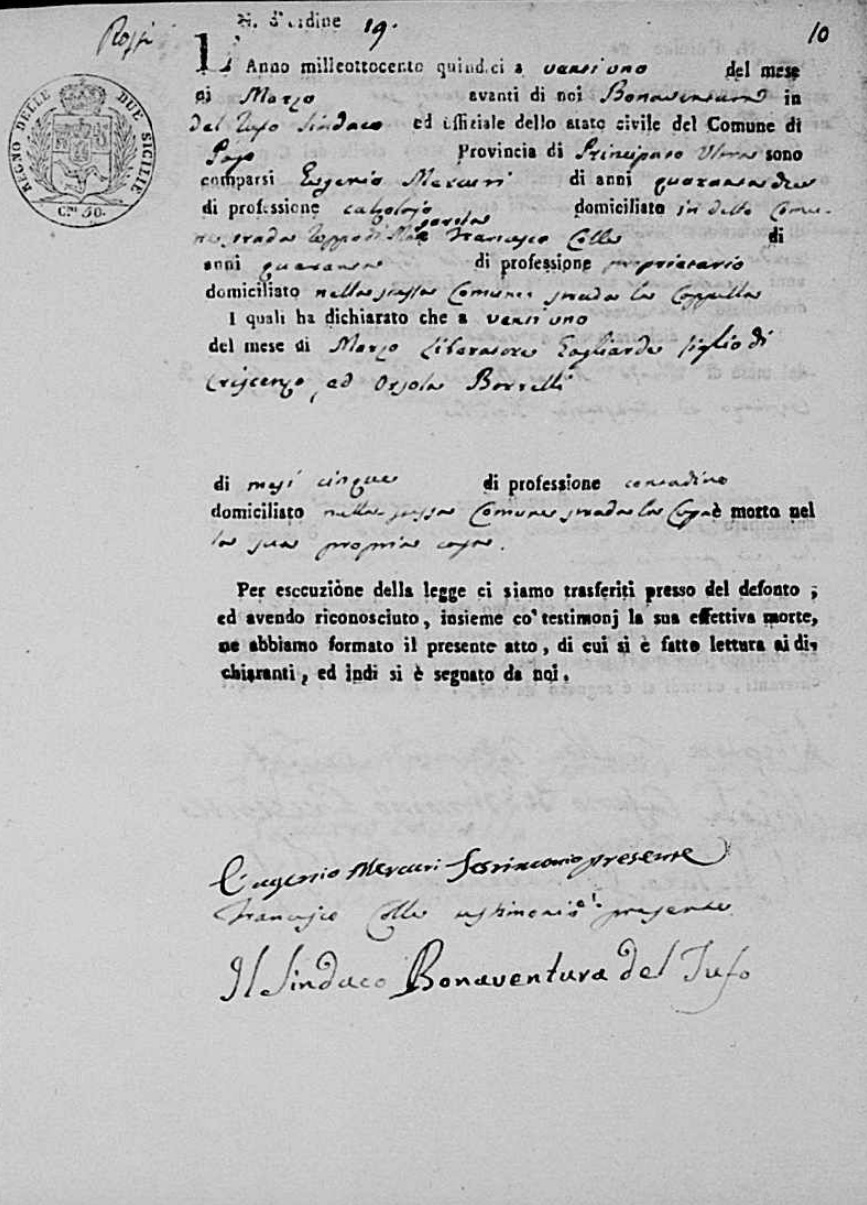 N. d'ordine 19.
10
REGNO DELLE DUE SICILIE
C.mi 50.
L'Anno milleottocento quindici a ventiuno del mese
di Marzo avanti di noi Bonaventura in
del Tufo Sindaco ed uffiziale dello stato civile del Comune di
Pago Provincia di Principato Ultra sono
comparsi Eugenio Mercuri di anni quarantadue
di professione calzolajo domiciliato in detto Comu-
ne strada Francesco Colle di
anni quaranta di professione proprietario
domiciliato nella stessa Comune strada la Cappella
I quali ha dichiarato che a ventiuno
del mese di Marzo Liberatore Gagliarde figlio di
Criscenzo, ed Orsola Borrelli
di mesi cinque di professione contadino
domiciliato nella stessa Comune strada la è morto nel
la sua propria casa.
Per esecuzione della legge ci siamo trasferiti presso del defonto ;
ed avendo riconosciuto, insieme co' testimonj la sua effettiva morte,
ne abbiamo formato il presente atto, di cui si è fatto lettura ai di-
chiaranti, ed indi si è segnato da noi.
Eugenio Mercuri presente
Francesco Colle testimonio presente
Il Sindaco Bonaventura del Tufo